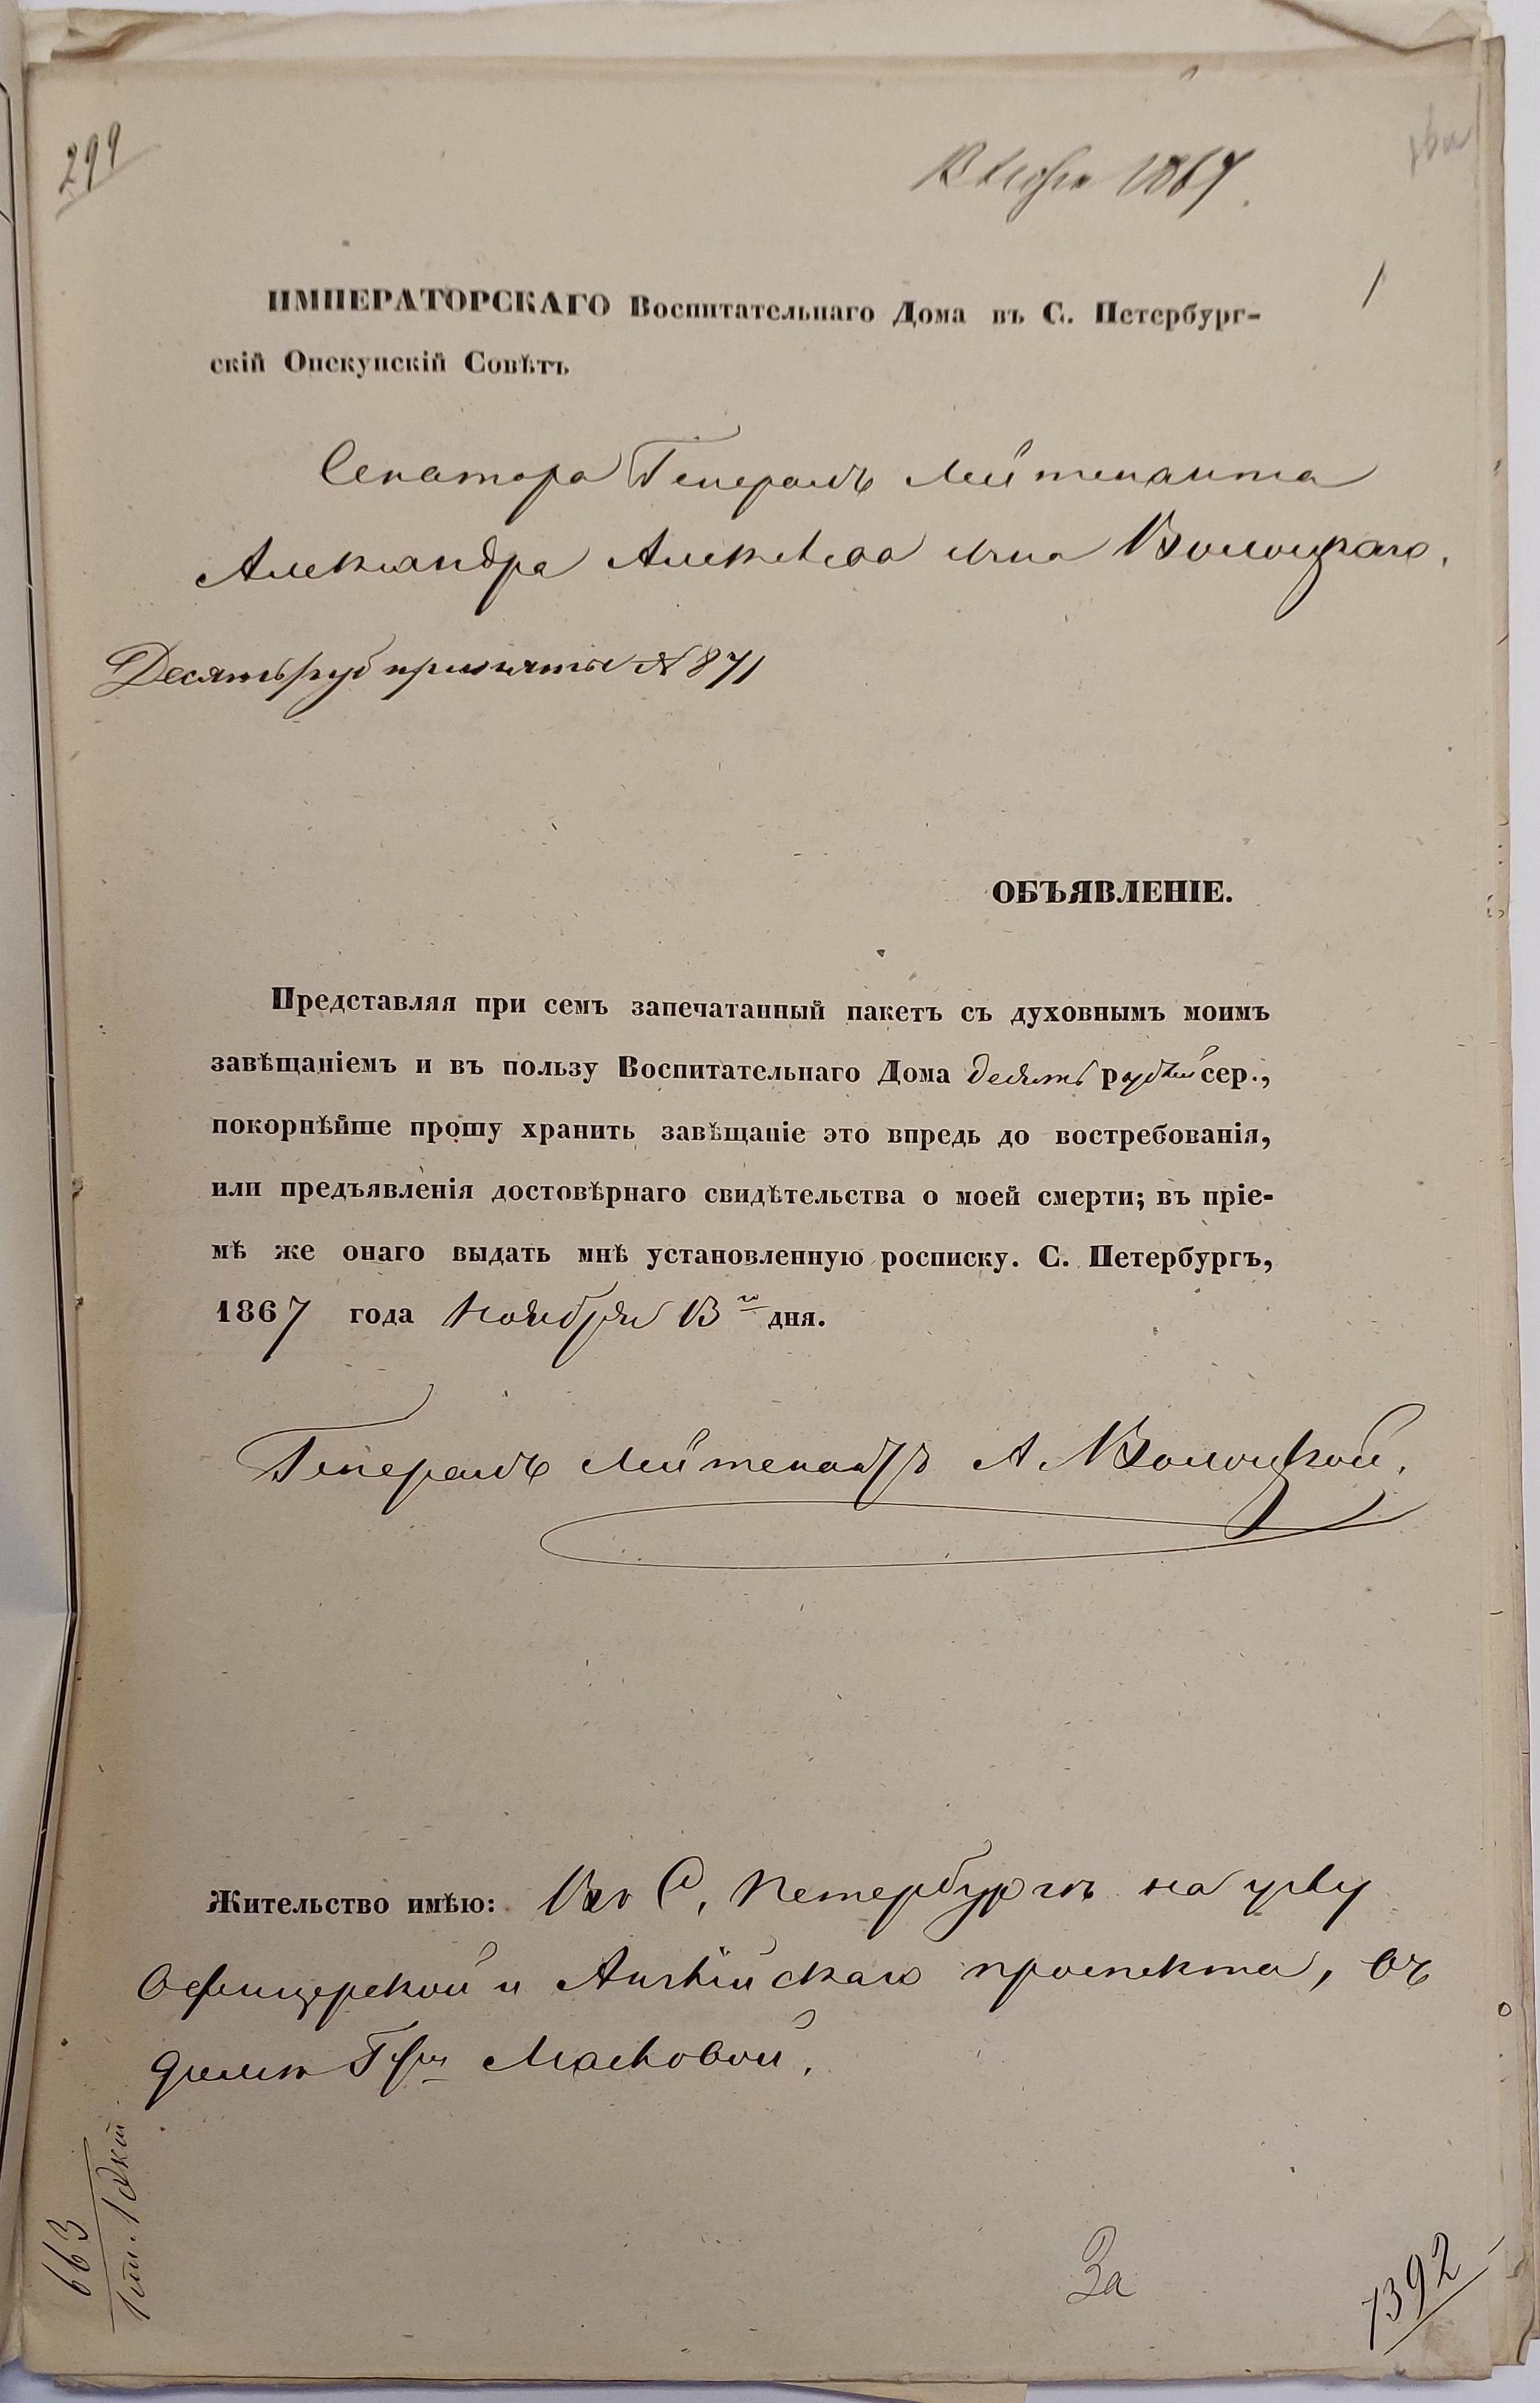 299
13 Ноября 1867.
1
ИМПЕРАТОРСКАГО Воспитательнаго Дома въ С. Петербург-
скій Опекунскій Совѣтъ
Сенатора Генералъ Лейтенанта
Александра Алексѣева сына Волоцкаго.
Десять руб приняты № 871
ОБЪЯВЛЕНІЕ.
Представляя при семъ запечатанный пакетъ съ духовнымъ моимъ
завѣщаніемъ и въ пользу Воспитательнаго Дома десять рублей сер.,
покорнѣйше прошу хранить завѣщаніе это впредь до востребованія,
или предъявленія достовѣрнаго свидѣтельства о моей смерти; въ пріе-
мѣ же онаго выдать мнѣ установленную росписку. С. Петербургъ,
1867 года Ноября 13 го дня.
Генералъ Лейтенантъ А Волоцкой.
Жительство имѣю: Въ С. Петербургѣ на углу
Офицерской и Англійскаго проспекта, въ
домѣ Гжи Масловой.
663
За
1392